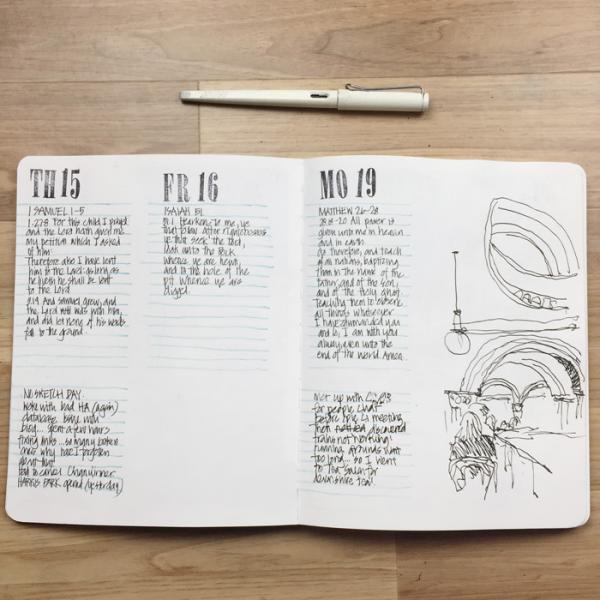 TH 15
1 SAMUEL 1-5
1:27,28 For this child I prayed
and the Lord hath given me
my petition which I asked
of him:
Therefore also I have lent
him to the Lord; as long as
he liveth he shall be lent
to the Lord
3:19 And Samuel grew, and
the Lord was with him,
and did let none of his words
fall to the ground.
NO SKETCH DAY
woke with bad HA (again)
database issue with
blog... spent a few hours
fixing links... so many broken
ones
had to cancel
HARRIS PARK (yesterday)
FR 16
ISAIAH 51
51:1 Hearken to me, ye
that follow after righteousness
ye that seek the Lord,
look unto the Rock
whence ye are hewn,
and to the hole of the
pit whence ye are
digged.
MO 19
MATTHEW 26-28
28:18-20 All power is
given unto me in heaven
and in earth.
Go therefore, and teach
all nations, baptizing
them in the name of the
Father, and of the Son,
and of the Holy Ghost:
Teaching them to observe
all things whatsoever
I have commanded you
and lo, I am with you
always, even unto the
end of the world. Amen.
Met up with
for people chat
before one to meeting
then discovered
trains not working!
running around
too long... so I went
to Tea Salon for
devonshire tea!